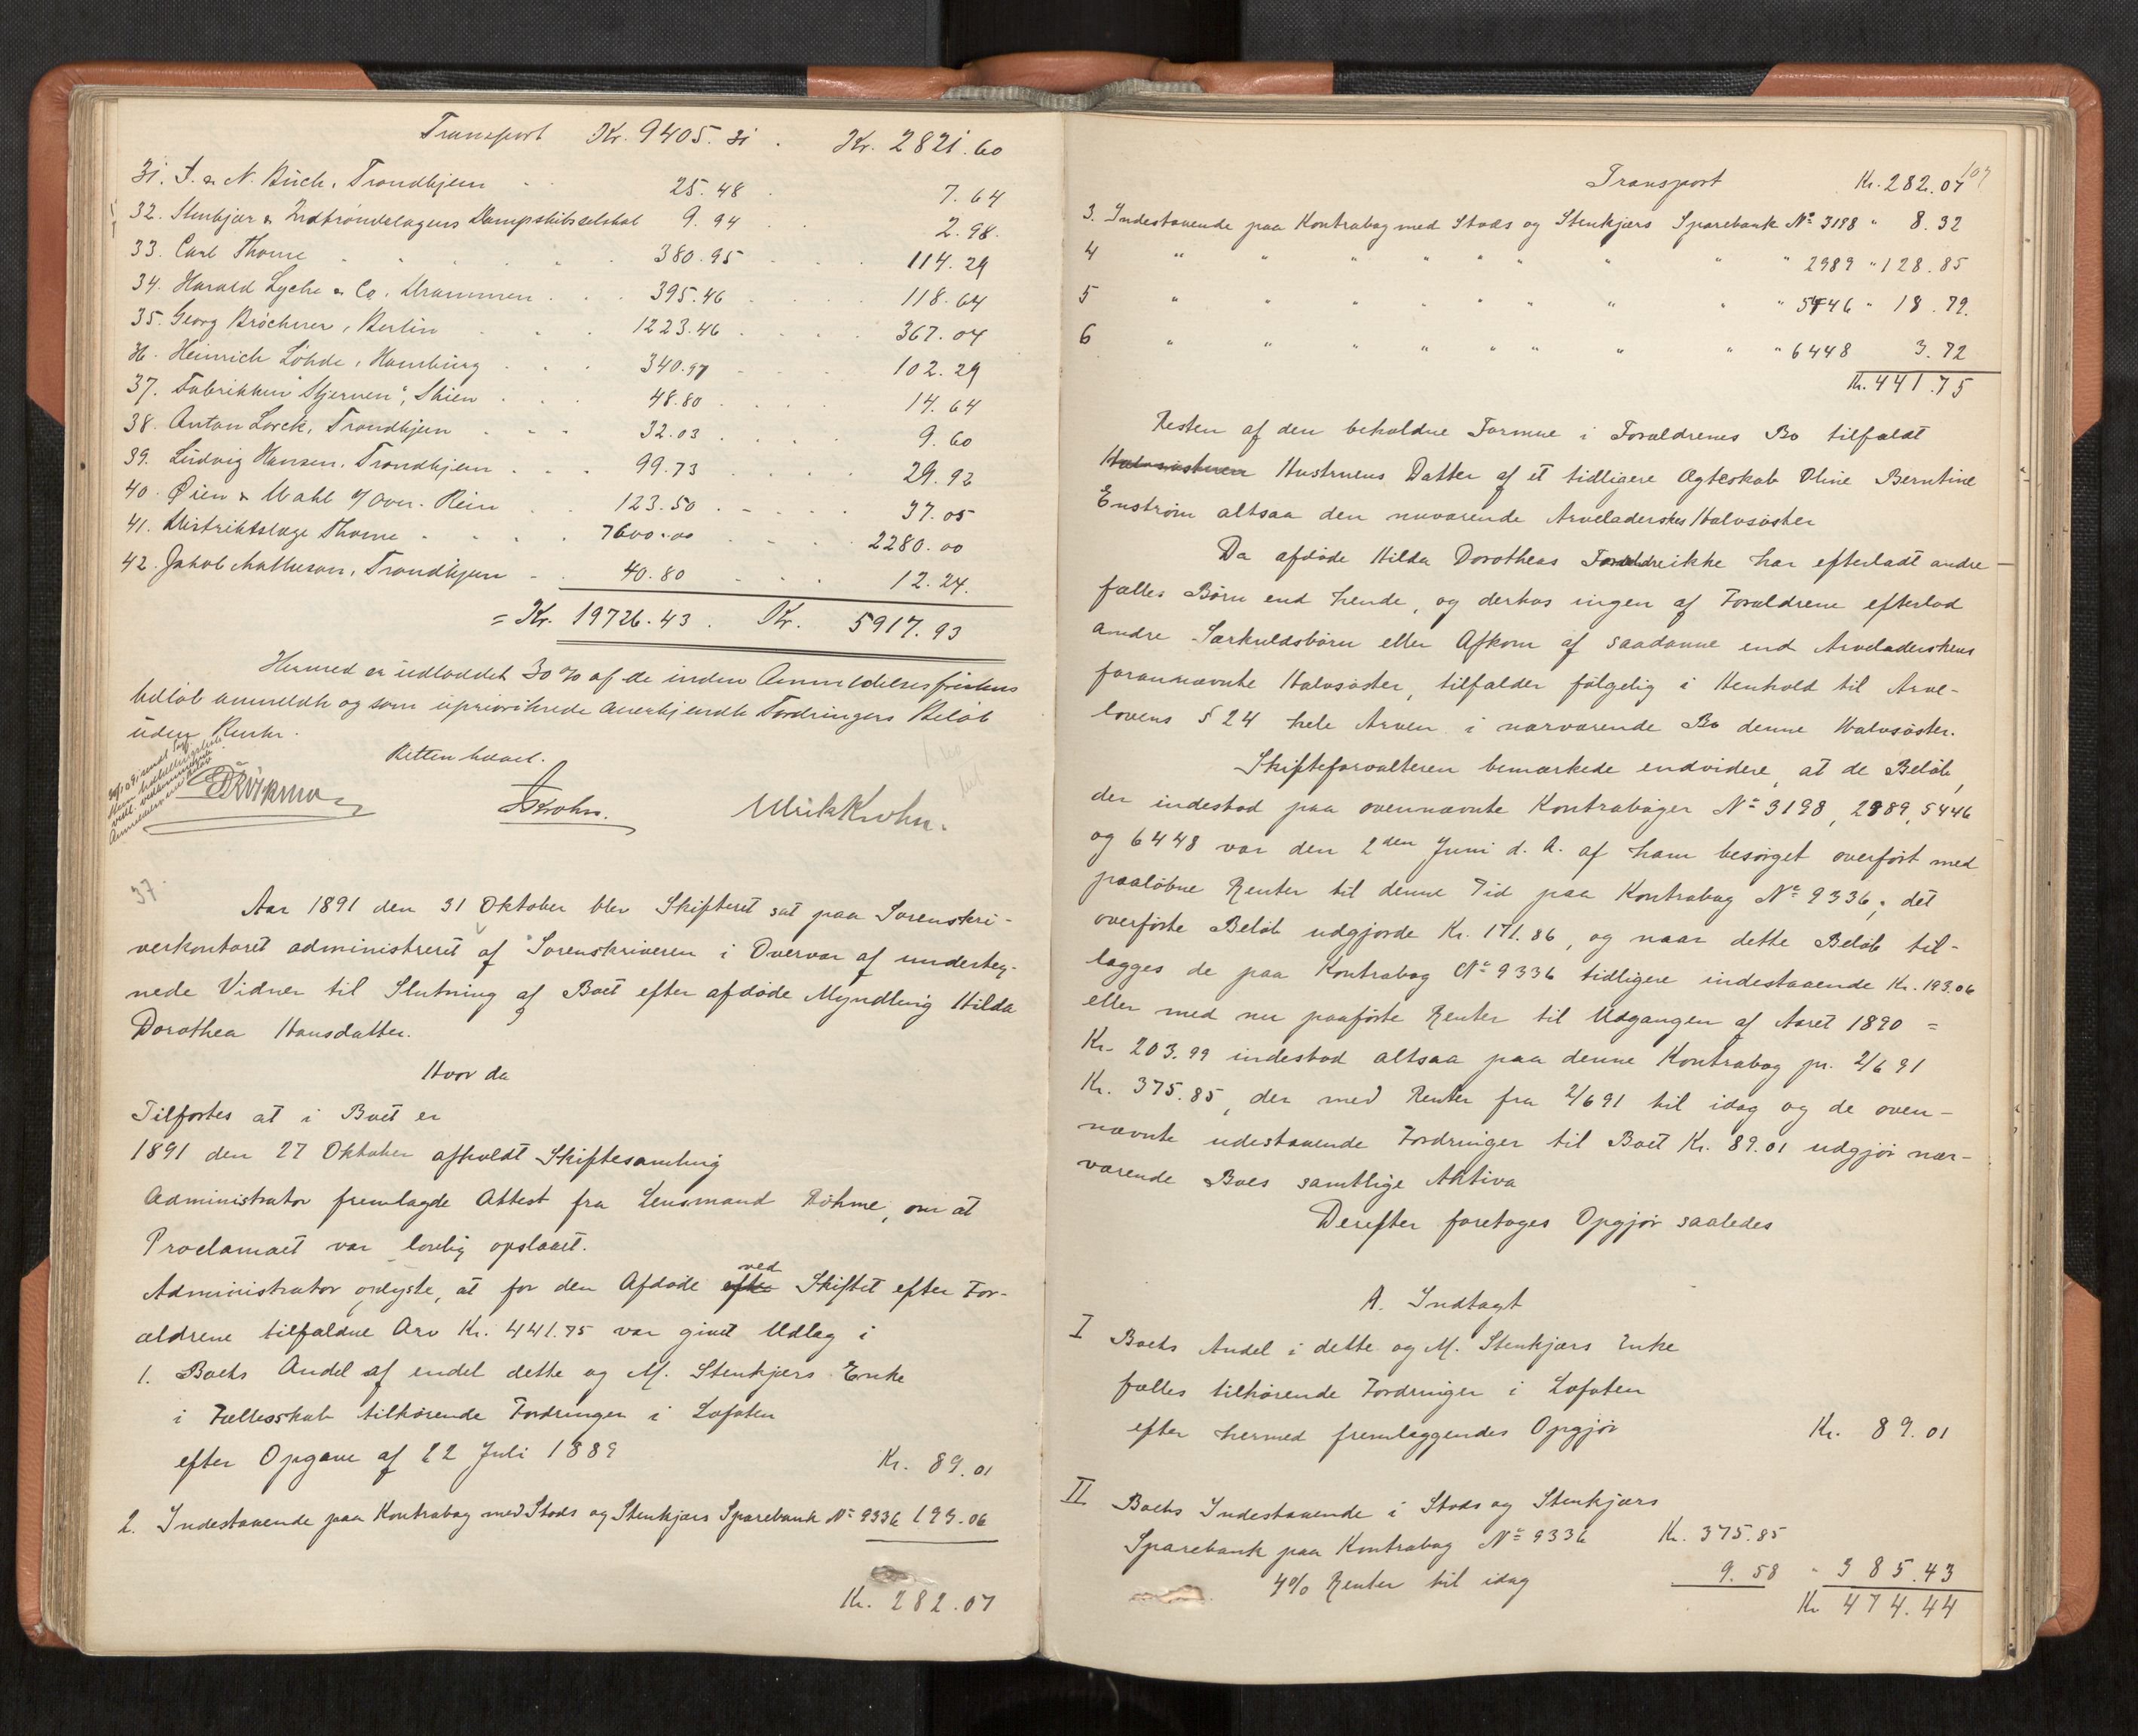 Transport Kr. 9405.31 . Kr. 2821.60
31. J. & N. Buch, Trondhjem 25.48 7.64
32. Stenkjær & Indtrøndelagens Dampskibsselskab 9.94 2.98.
33. Carl Thorne 380.95 114.29
34. Harald Lyche & Co, Drammen 395.46 118.64
35. Georg Bröchner, Berlin 1223.46 367.04
36. Heinrich Löhde, Hamburg 340.97 102.29
37. Fabrikken "Stjernen", Skien 48.80 14.64
38. Anton Lorck, Trondhjem 32.03 9.60
39. Ludvig Hansen, Trondhjem 99.73 29.92
40. Øien & Wahl Rein 123.50 37.05
41. Distriktslæge Thorne 7600.00 2280.00
42. Jakob Matheson, Trondhjem 40.80 12.24.
= Kr. 19726.43 . Kr. 5917.93
Hermed er udloddet 30 % af de inden Anmeldelsesfristens
Udløb anmeldte og som upriorikrede anerkjendte Fordringers Beløb
uden Renter.
Retten hævet.
Krohn. Ulrik Krohn.
37.
Aar 1891 den 31 Oktober blev Skifteret sat paa Sorenskri-
verkontoret administreret af Sorenskriveren i Overvær af underteg-
nede Vidner til Slutning af Boet efter afdøde Myndling Hilda
Dorothea Hansdatter.
Hvor da
Tilførtes at i Boet er
1891 den 27 Oktober afholdt Skiftesamling
Administrator fremlagde Attest fra Lensmand Böhme, om at
Proclamaet var lovlig opslaaet.
Administrator oplyste, at for den Afdøde efter ved Skiftet efter For-
ældrene tilfaldne Arv Kr. 441.75 var givet Udlæg i
1. Boets Andel af endel dette og M. Stenkjærs Enke
i Fællesskab tilhørende Fordringer i Lofoten
efter Opgave af 22 Juli 1889 Kr. 89.01
2. Indestaaende paa Kontrabog med Stods og Stenkjærs Sparebank No 9336 193.06
Kr. 282.07
107
Transport Kr. 282.07
3. Indestaaende paa Kontrabog med Stods og Stenkjærs Sparebank No 3198 " 8.32
4 " " " " " " " " " 2989 " 128.85
5 " " " " " " " " " 5446 " 18.79.
6 " " " " " " " " " 6448 3.72
Kr. 441.75
Resten af den beholdne Formue i Forældrenes Bo tilfaldt
Halvsøsteren Hustruens Datter af et tidligere Ægteskab Oline Berntine
Enstrøm altsaa den nuværende Arveladerskes Halvsøster
Da afdøde Hilda Dorotheas Forældre ikke har efterladt andre
fælles Børn end hende, og derhos ingen af Forældrene efterlod
andre Særkuldsbørn eller Afkom af saadanne end Arveladerskens
forannævnte Halvsøster, tilfalder følgelig i Henhold til Arve-
lovens § 24 hele Arven i nærværende Bo denne Halvsøster.
Skifteforvalteren bemærkede endvidere, at de Beløb,
der indestod paa ovennævnte Kontrabøger No 3198, 2989, 5446
og 6448 var den 2den Juni d. A. af ham besørget overført med
paaløbne Renter til denne Tid paa Kontrabog No 9336; det
overførte Beløb udgjorde Kr. 171.86, og naar dette Beløb til-
lægges de paa Kontrabog No 9336 tidligere indestaaende Kr. 193.06
eller med nu paaførte Renter til Udgangen af Aaret 1890 =
Kr. 203.99 indestod altsaa paa denne Kontrabog pr. 2/6 91
Kr. 375.85, der med Renter fra 2/6 91 til idag og de oven-
nævnte udestaaende Fordringer til Boet Kr. 89.01 udgjør nær-
værende Boes samtlige Aktiva
Derefter foretoges Opgjør saaledes
A. Indtægt
I Boets Andel i dette og M. Stenkjærs Enke
fælles tilhørende Fordringer i Lofoten
efter hermed fremlæggendes Opgjør Kr. 89.01
II Boets Indestaaende i Stods og Stenkjærs
Sparebank paa Kontrabog No 9336 Kr. 375.85
4% Renter til idag 9.58 " 385.43
Kr 474.44